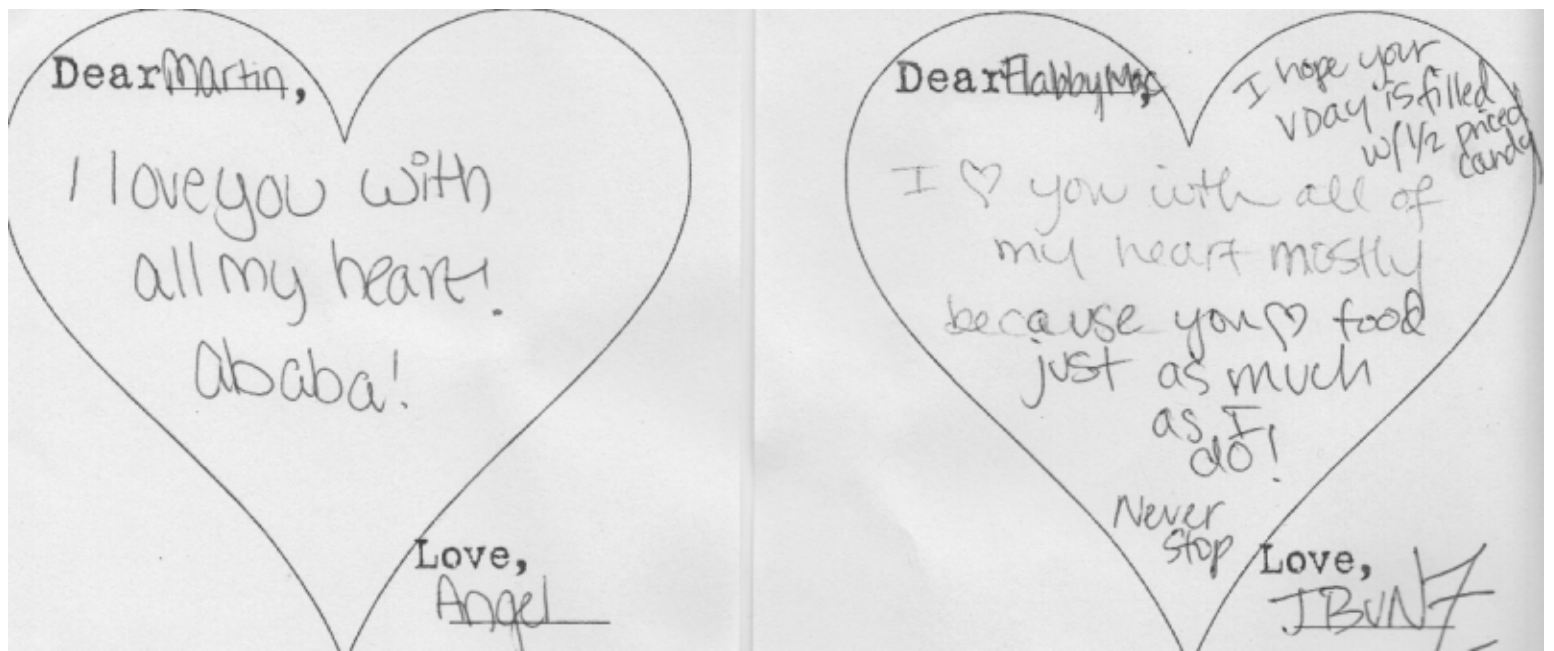 Dear Martin,
I love you with
all my heart!
ababa!
Love,
Angel
Dear FlabbyMac,
I hope your
VDay is filled
w/ 1/2 priced
candy
I ♡ you with all of
my heart mostly
because you ♡ food
just as much
as I
do!
Never
Stop
Love,
JBUNZ